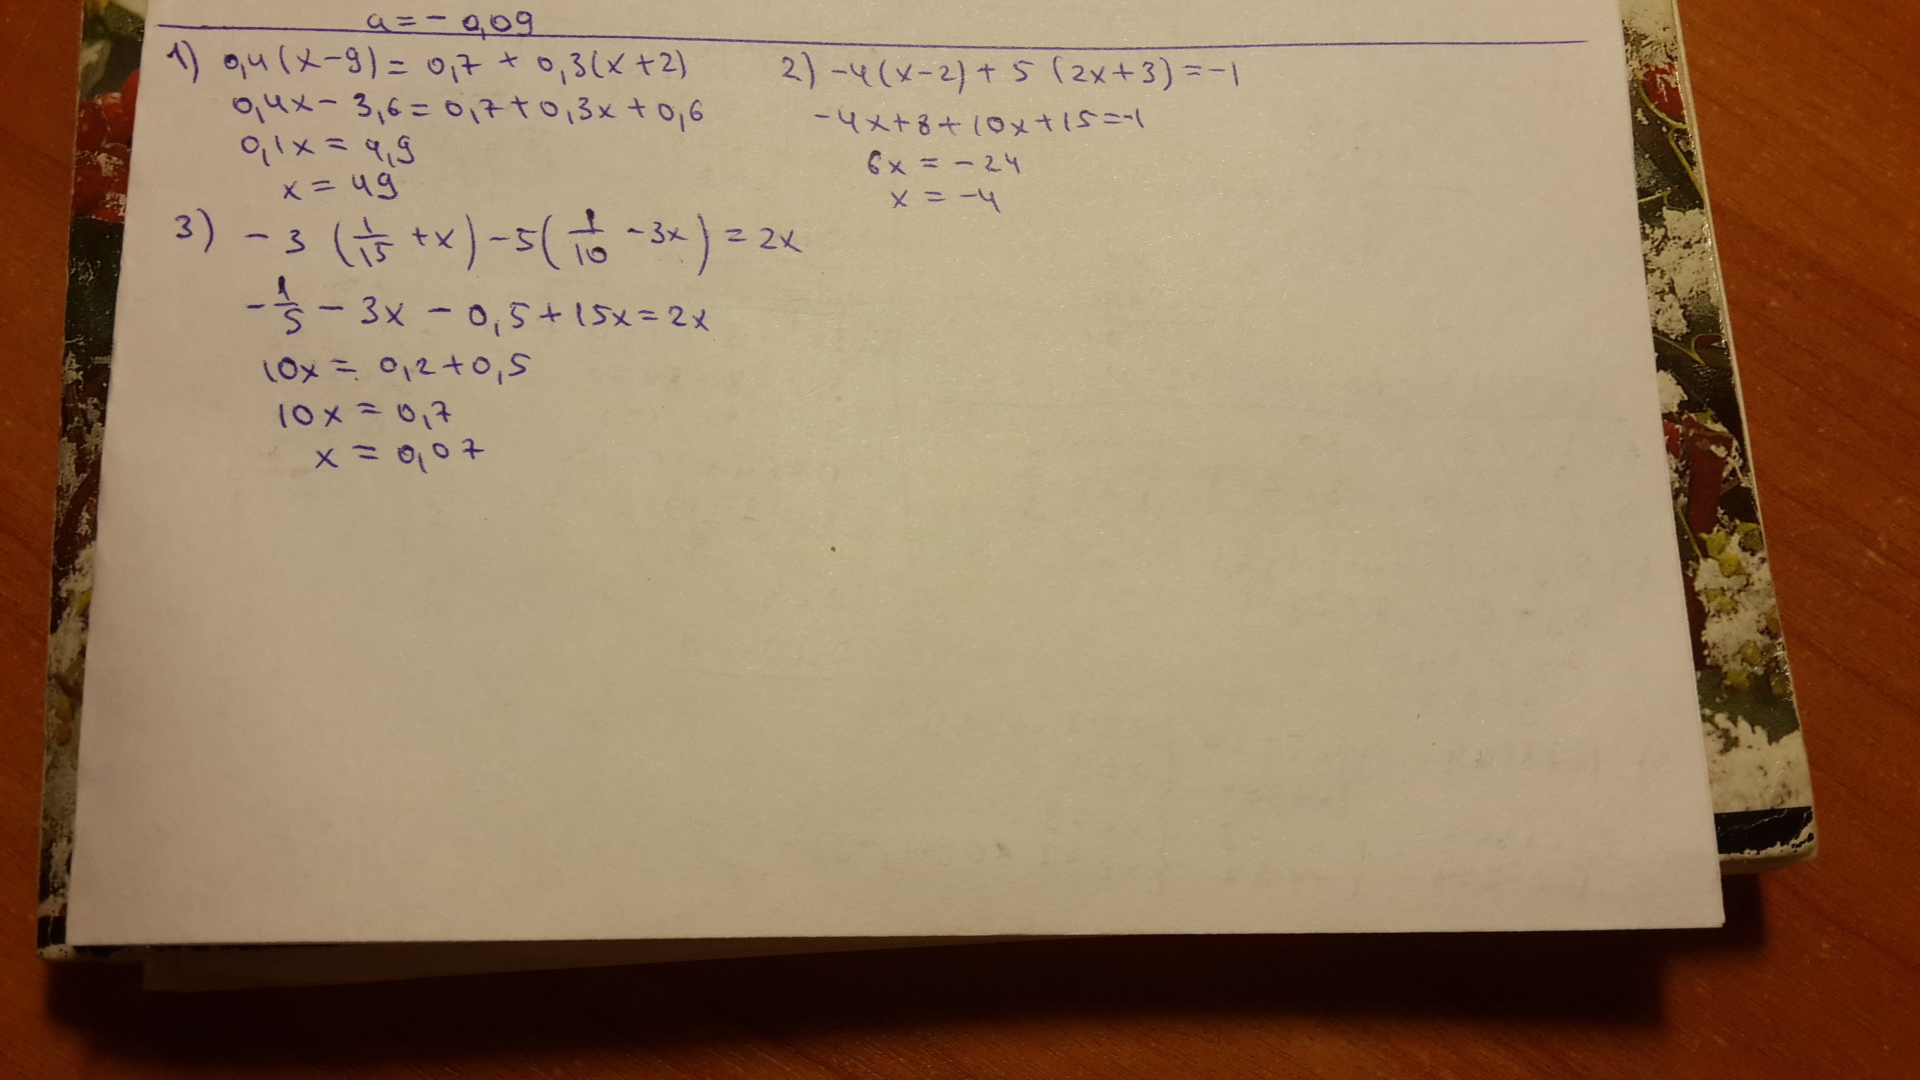 a = - 0,09
1) 0,4(x-9) = 0,7 + 0,3(x+2)
0,4x - 3,6 = 0,7 + 0,3x + 0,6
0,1x = 4,9
x = 49
2) -4(x-2) + 5 (2x+3) = -1
-4x+8+10x+15=-1
6x = -24
x = -4
3) -3 (1/15 + x) - 5(1/10 - 3x) = 2x
-1/5 - 3x - 0,5 + 15x = 2x
10x = 0,2+0,5
10x = 0,7
x = 0,07